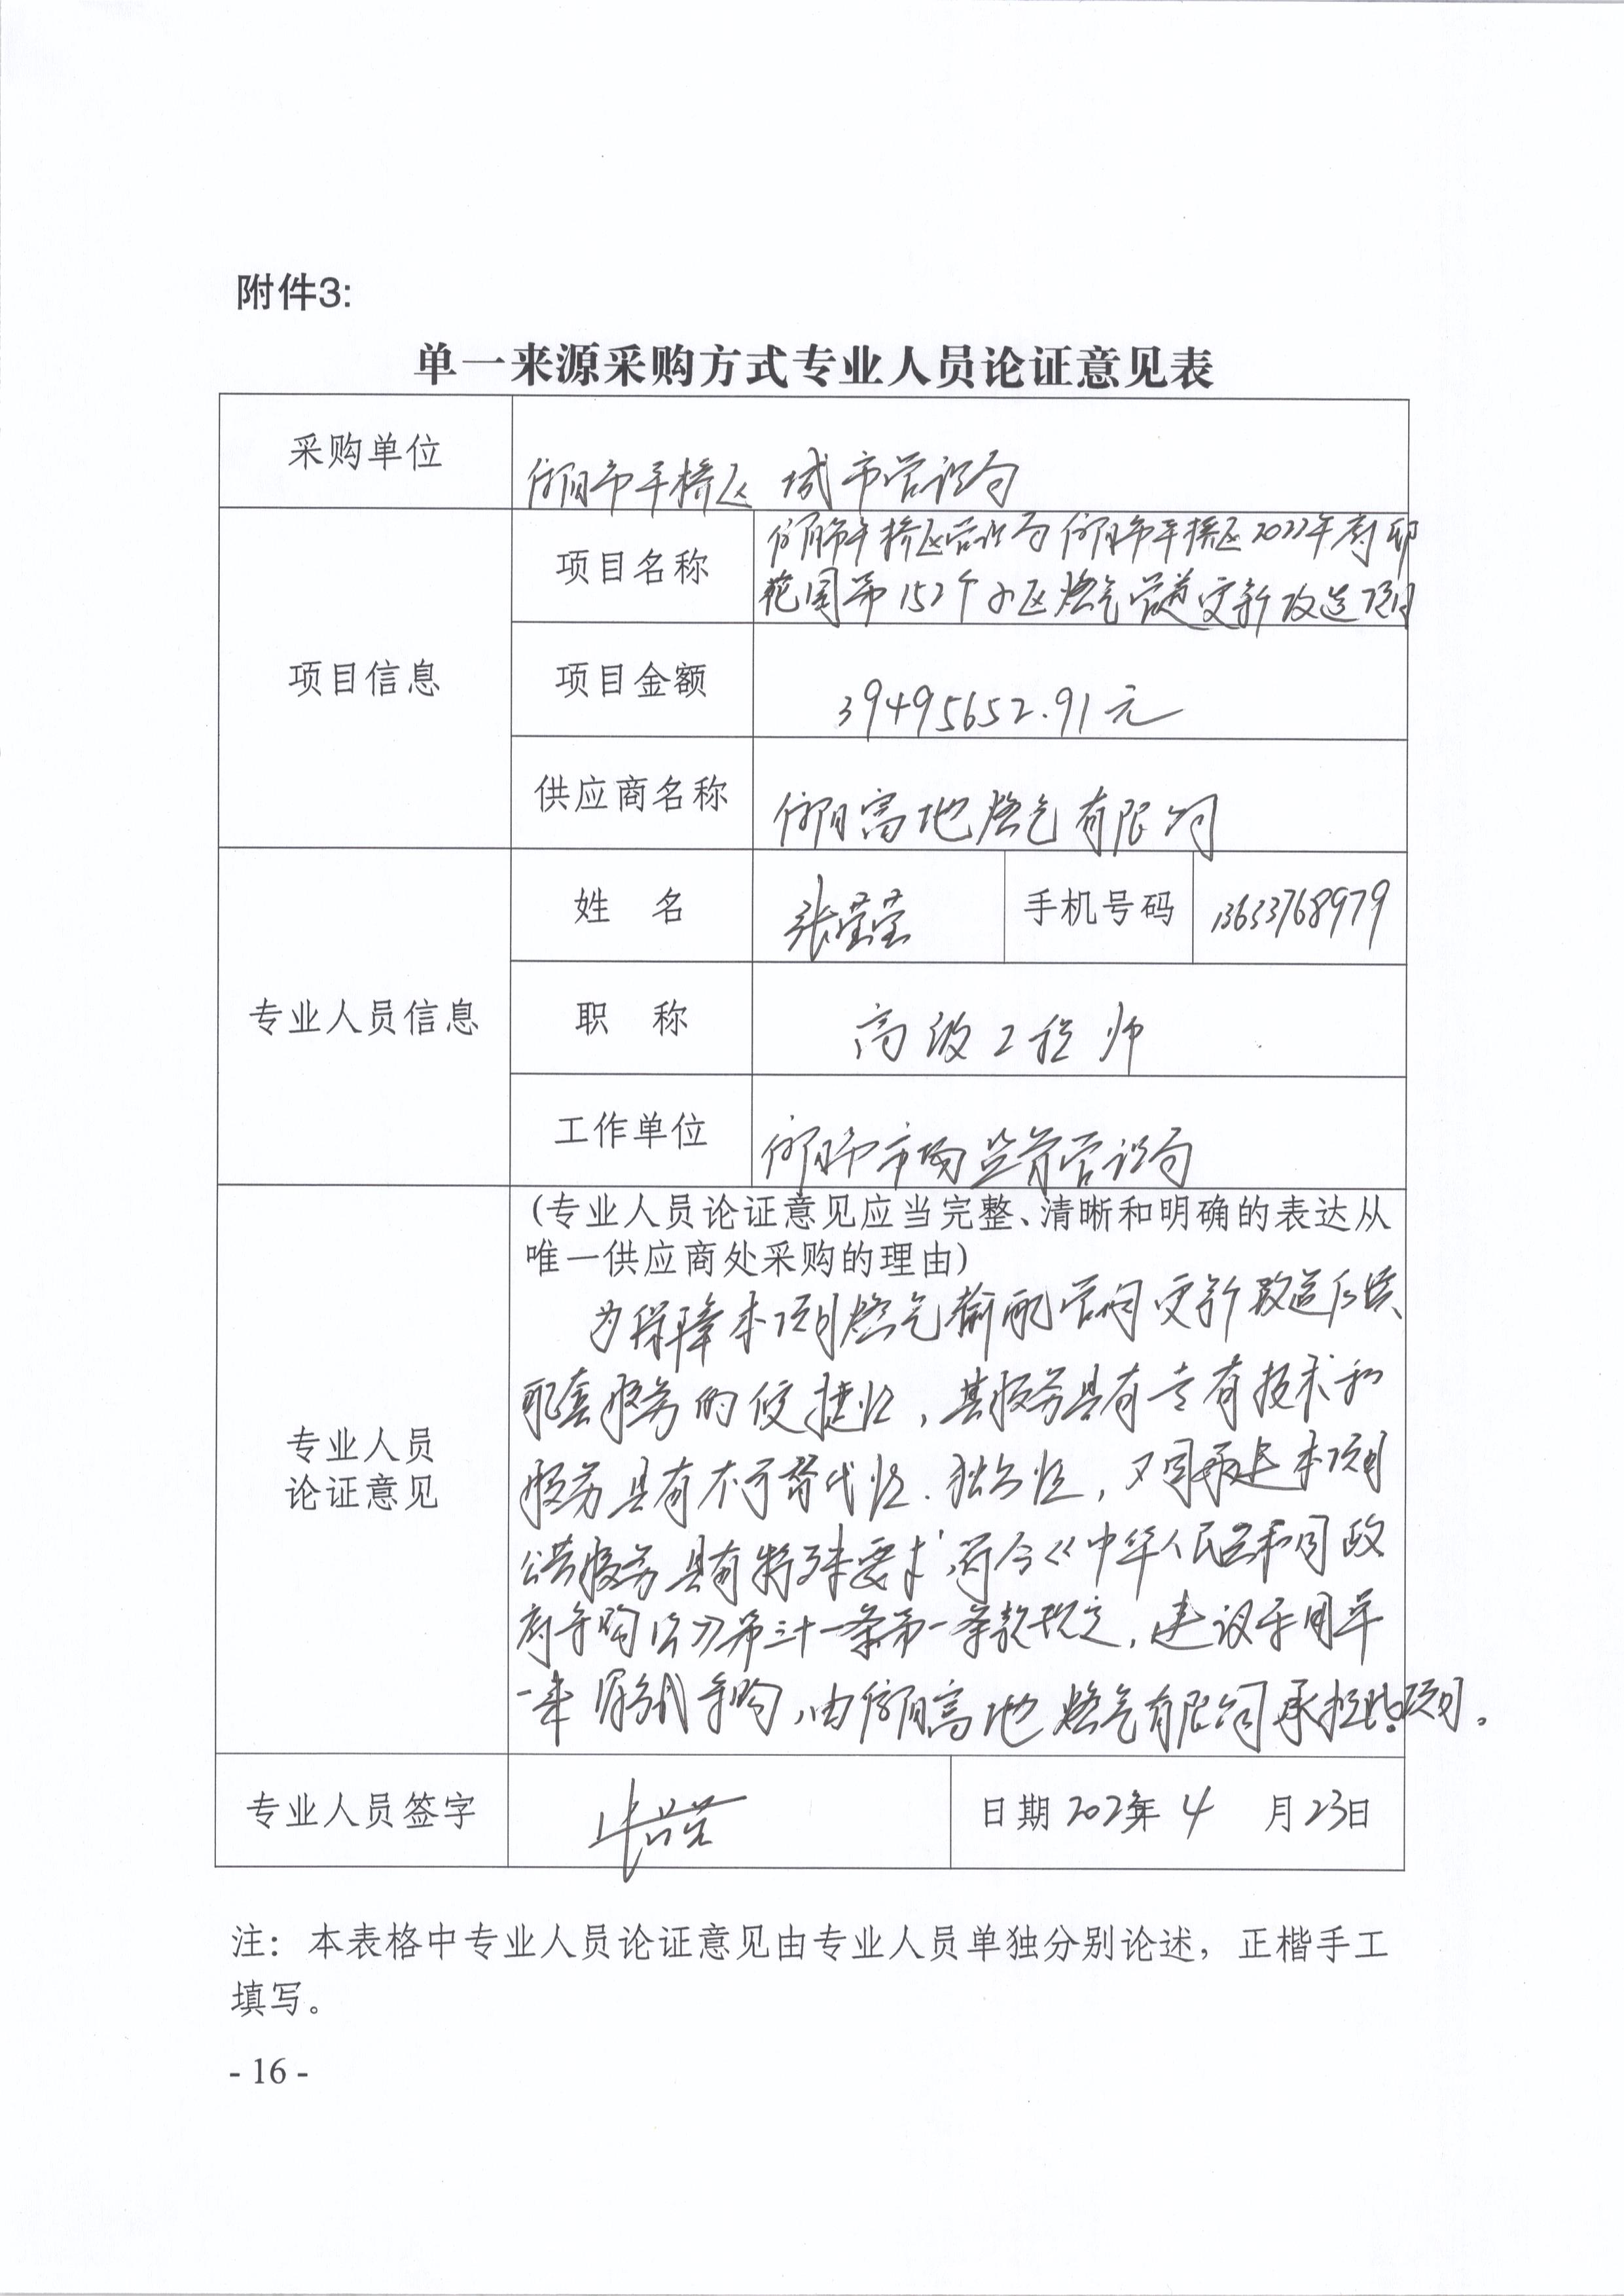 附件3:
单一来源采购方式专业人员论证意见表
采购单位
信阳市平桥区城市管理局
项目信息
项目名称
信阳市平桥区管理局信阳市平桥区2022年
范围第152个小区燃气管道更新改造项目
项目金额
39495652.91元
供应商名称
信阳富地燃气有限公司
专业人员信息
姓 名
张莹莹
手机号码
13633768979
职 称
高级工程师
工作单位
信阳市市场监督管理局
专业人员
论证意见
(专业人员论证意见应当完整、清晰和明确的表达从
唯一供应商处采购的理由)
为保障本项目燃气输配管网更新改造后续
配套服务的便捷性,其服务具有专有技术和
服务具有不可替代性.独台性,又同承本项目
公共服务具有特殊要求,符合《中华人民共和国政
府采购法》第三十一条第一条款规定,建议采用单
一来源方式采购,由信阳富地燃气有限公司承担此项目。
专业人员签字
日期 2022年 4 月 23日
注: 本表格中专业人员论证意见由专业人员单独分别论述,正楷手工
填写。
- 16 -